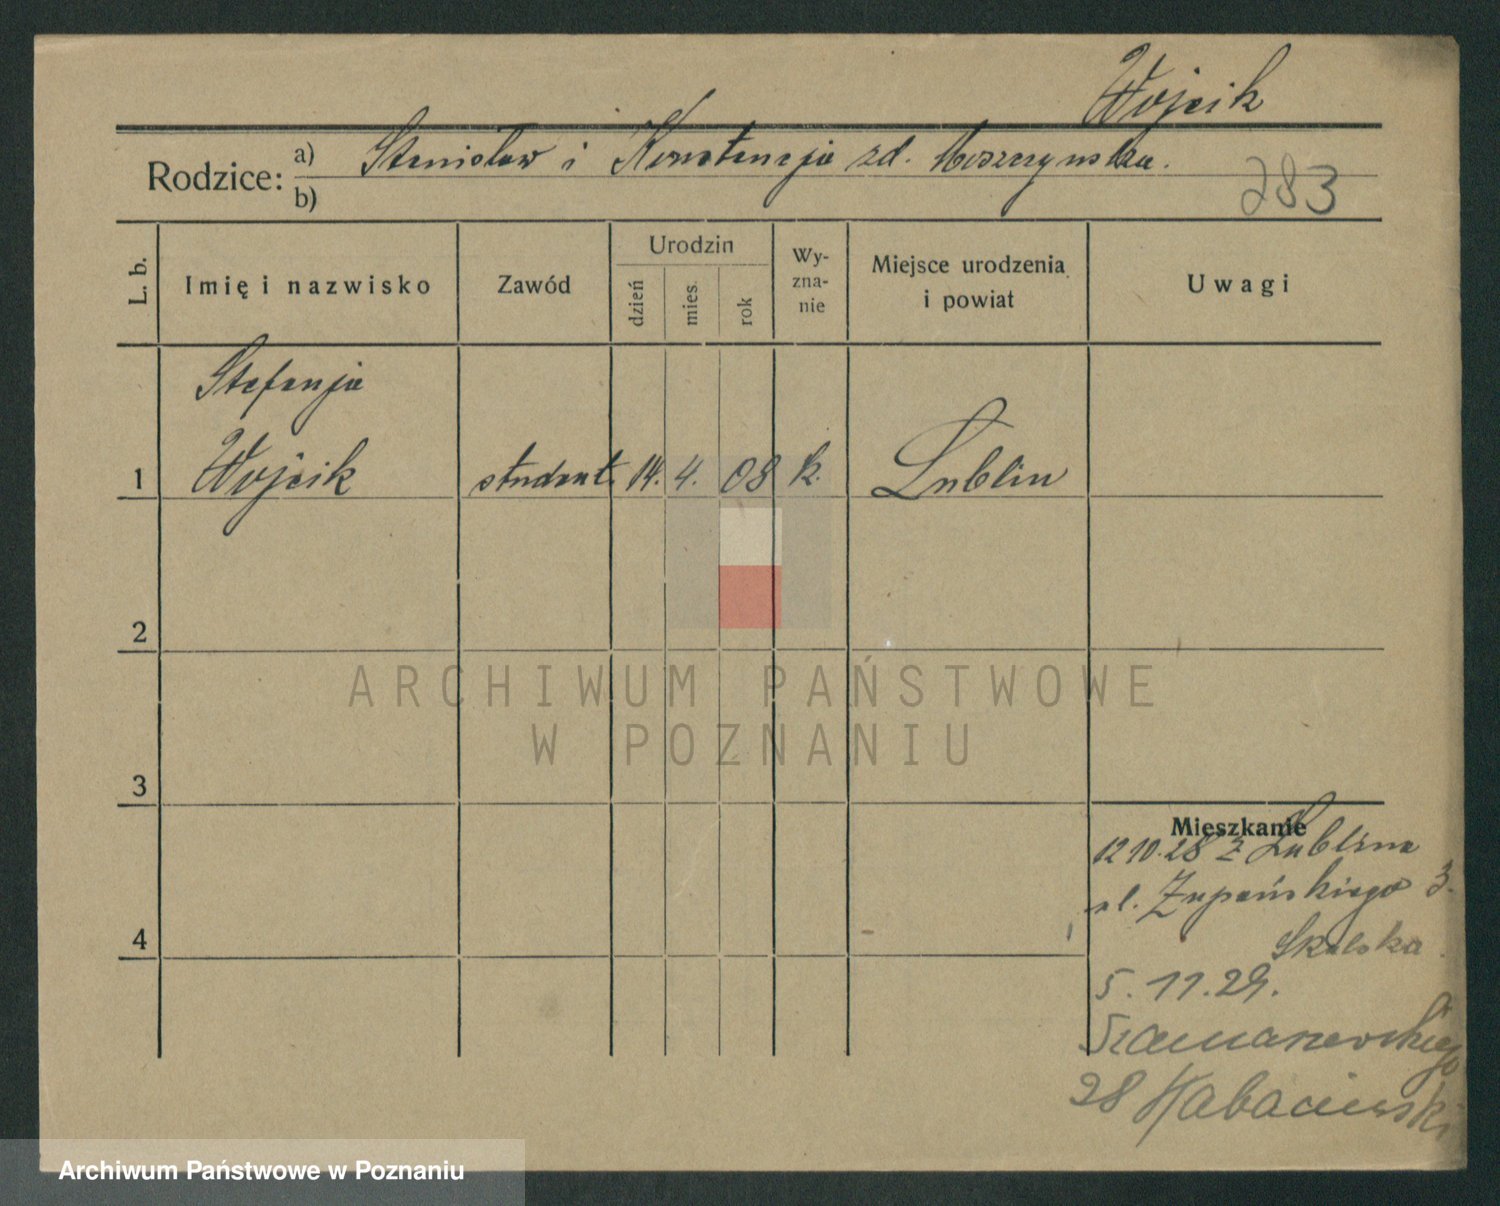 Wojcik
Rodzice: a) Stanisław i Konstancja zd. Moszczynska.
b)
283
L. b.
Imię i nazwisko
Zawód
Urodzin
dzień
mies.
rok
Wy-
zna-
nie
Miejsce urodzenia
i powiat
Uwagi
Stefanja
1 Wojcik student. 14. 4. 08 k. Lublin
2
ARCHIWUM PAŃSTWOWE
W POZNANIU
3
Mieszkanie
12 10. 28 z Lublina
ul. Żupańskiego 3.
Skalska
4
5. 11. 29.
28
Archiwum Państwowe w Poznaniu